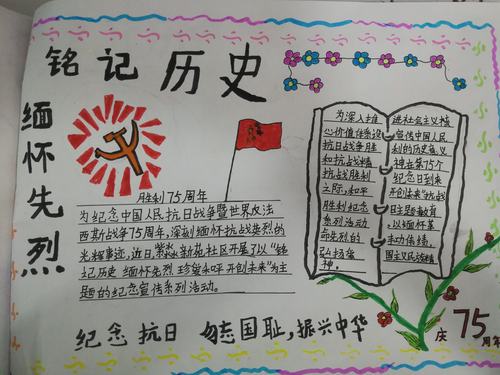 铭记历史
缅怀先烈
胜利75周年
为纪念中国人民抗日战争暨世界反法
西斯战争75周年,深刻缅怀抗战英烈的
光辉事迹,近日,紫新苑社区开展了以“铭
记历史 缅怀先烈 珍爱和平 开创未来”为主
题的纪念宣传系列活动。
为深入培
心价值体系
抗日战争胜
和抗战精
抗战胜利
之际,和平
胜利纪念
系列活动
命先烈的
弘扬奋
神。
进社会主义核
宣传中国人民
利的历史意义
神在第75个
纪念日到来
开创未来”抗战
日主题教育
以缅怀革
丰功伟绩,
国主义民族精
纪念抗日 勿忘国耻,振兴中华
庆75周年